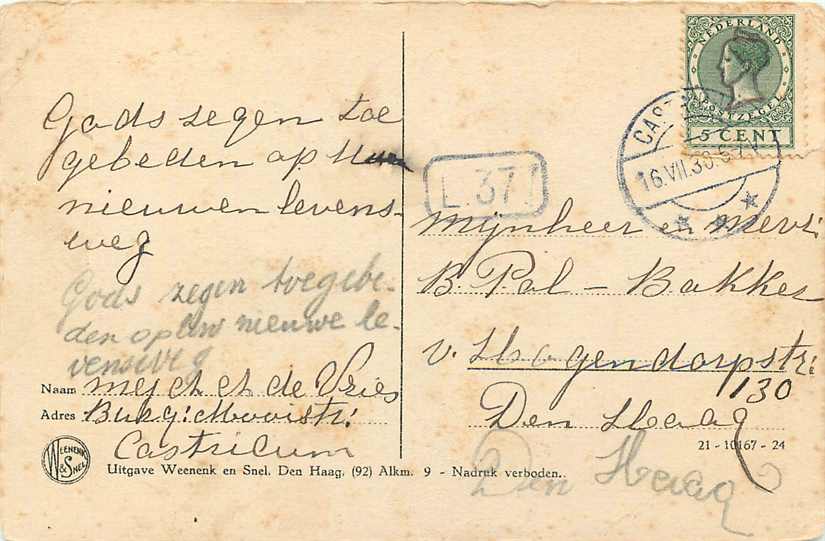 Gods zegen toe
gebeden op Uw
nieuwen levens-
weg
Gods zegen toegebe-
den op Uw nieuwe le-
vensweg
Naam mej de Vries
Adres Burg: Mooistr:
Castricum
WEENENK
& SNEL
Uitgave Weenenk en Snel. Den Haag. (92) Alkm. 9 - Nadruk verboden.
NEDERLAND
POSTZEGEL
5 CENT
16.VII.30.
L.37
Mijnheer en Mevr:
B. Pol - Bakker
v. Hogendorpstr:
130
Den Haag
21 - 10167 - 24
Den Haag